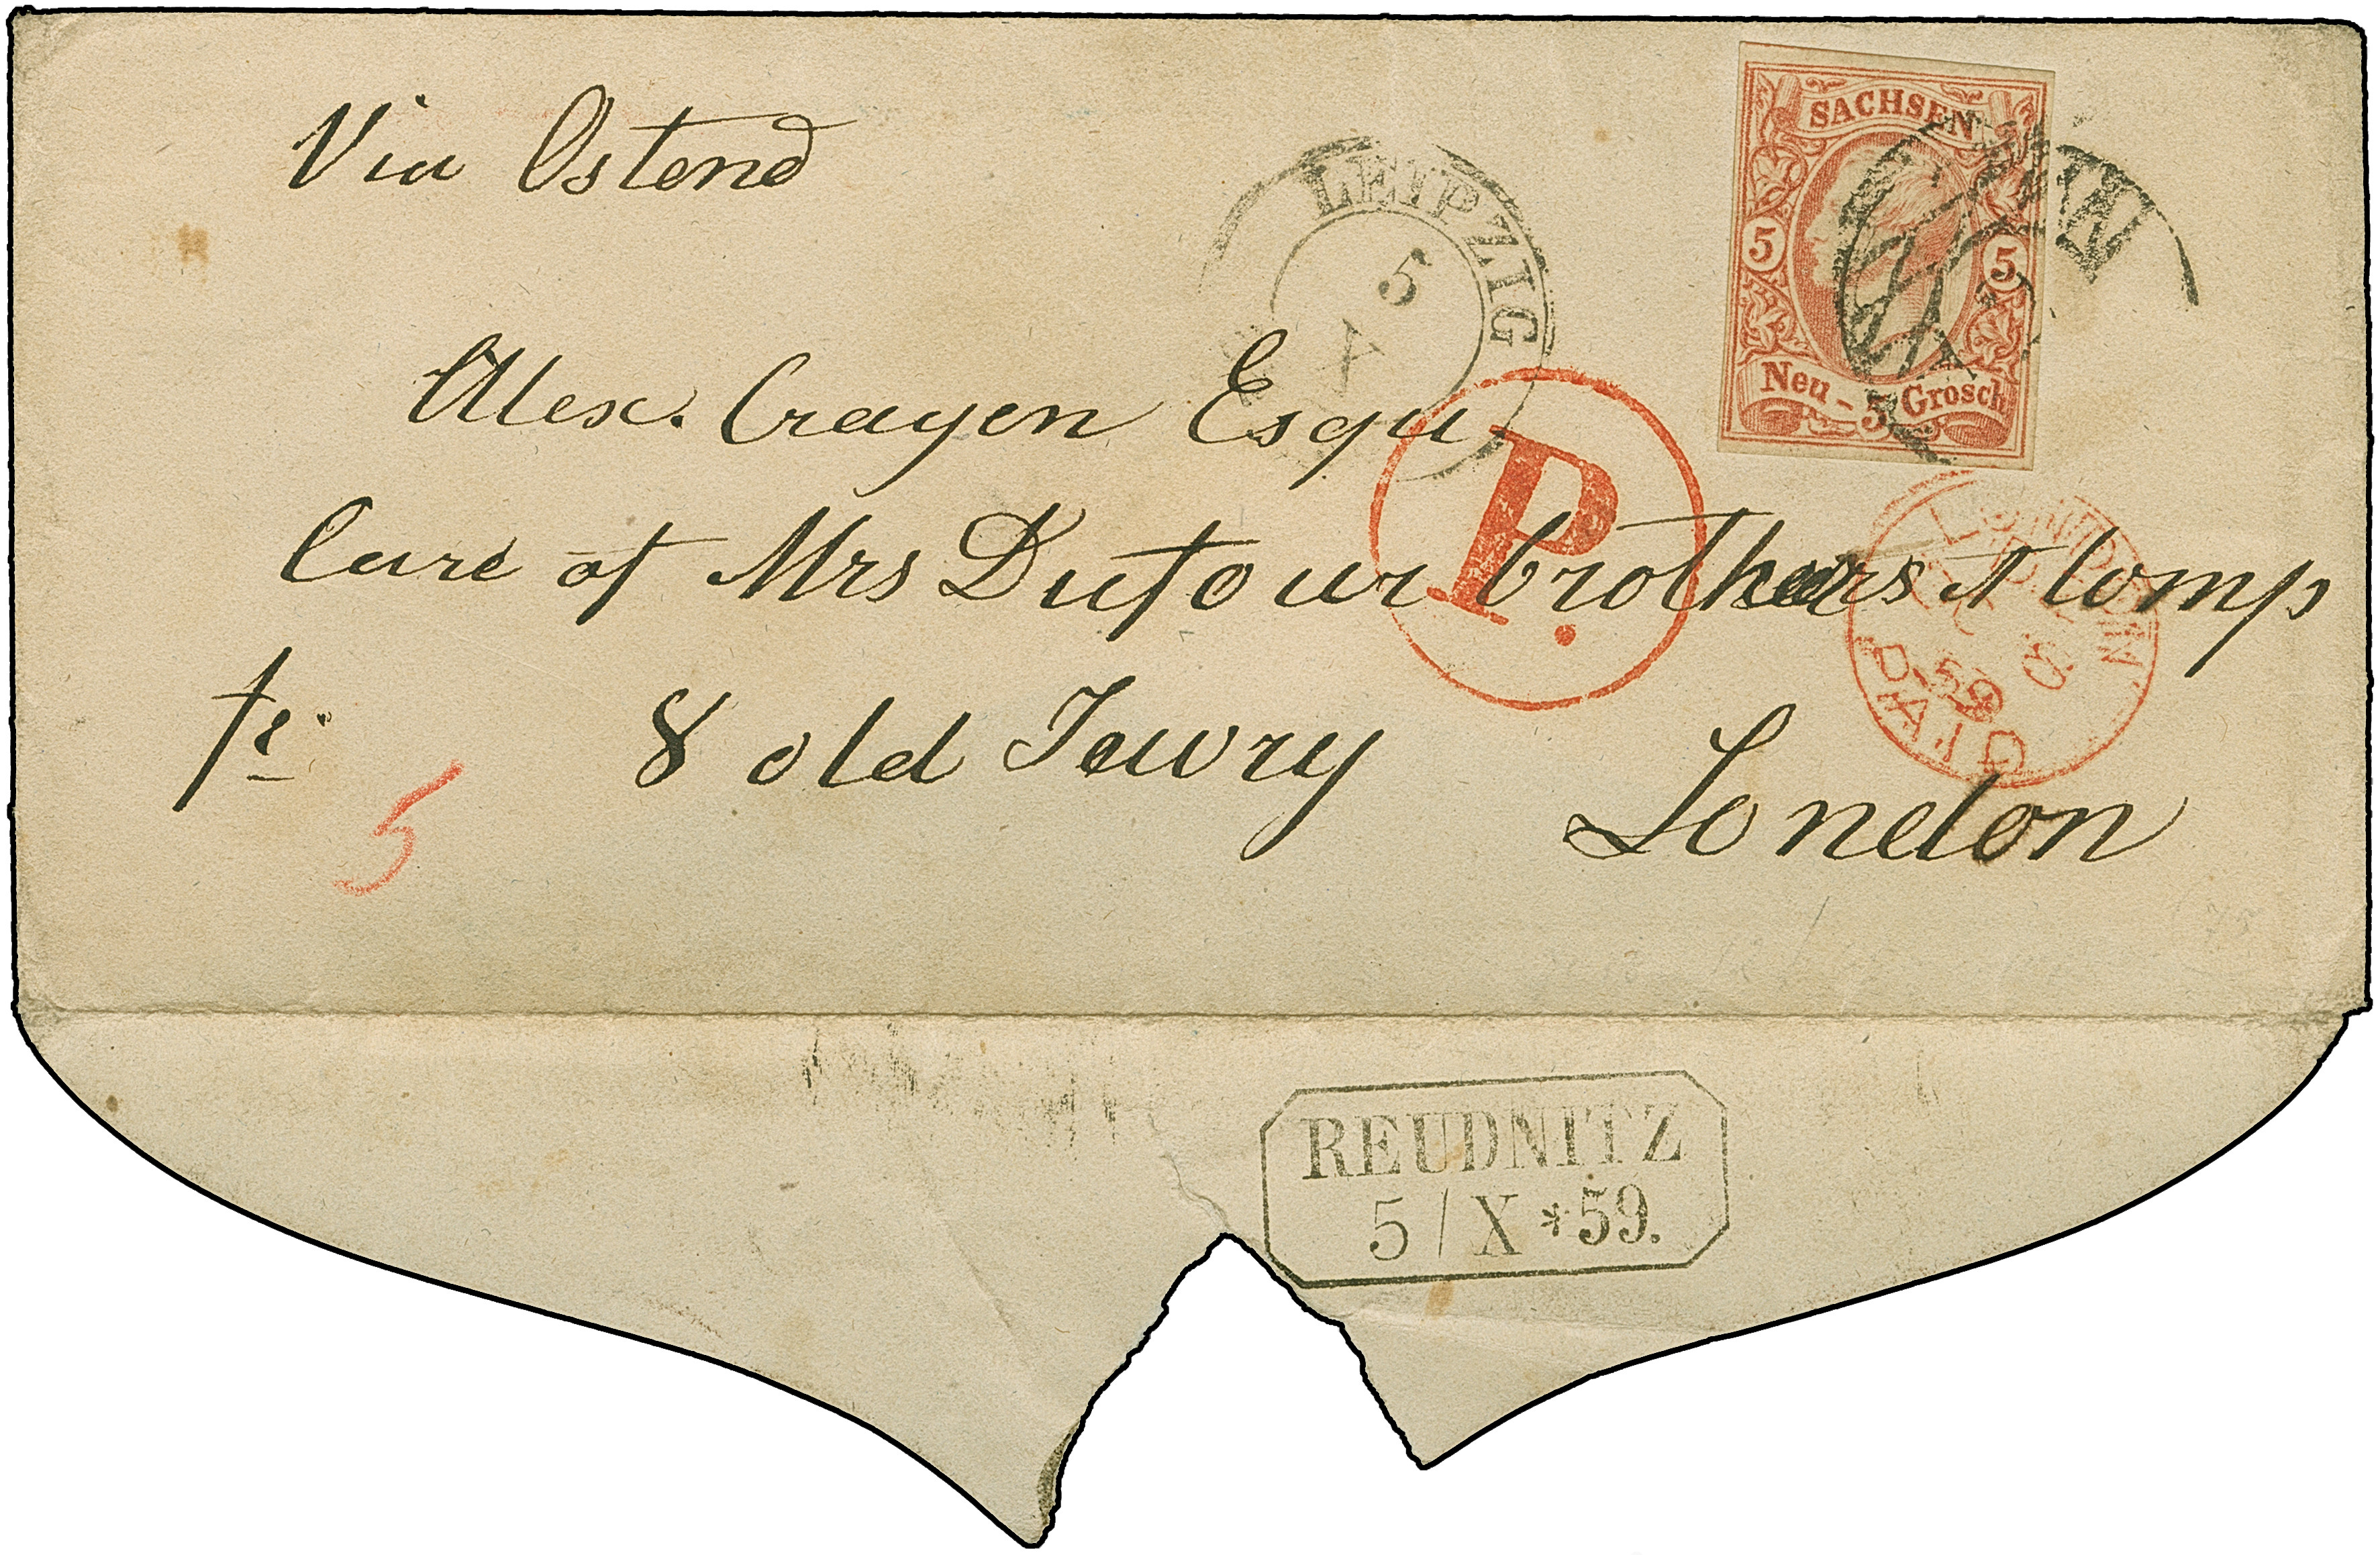 Via Ostend
SACHSEN
5 5
Neu-5 Grosch
LEIPZIG
5
X
Alex. Crayen Esqu
P.
Care of Mrs Dufour brothers & Comp
LONDON
59
PAID
fr.
8 old Jewry
London
5
REUDNITZ
5 / X * 59.